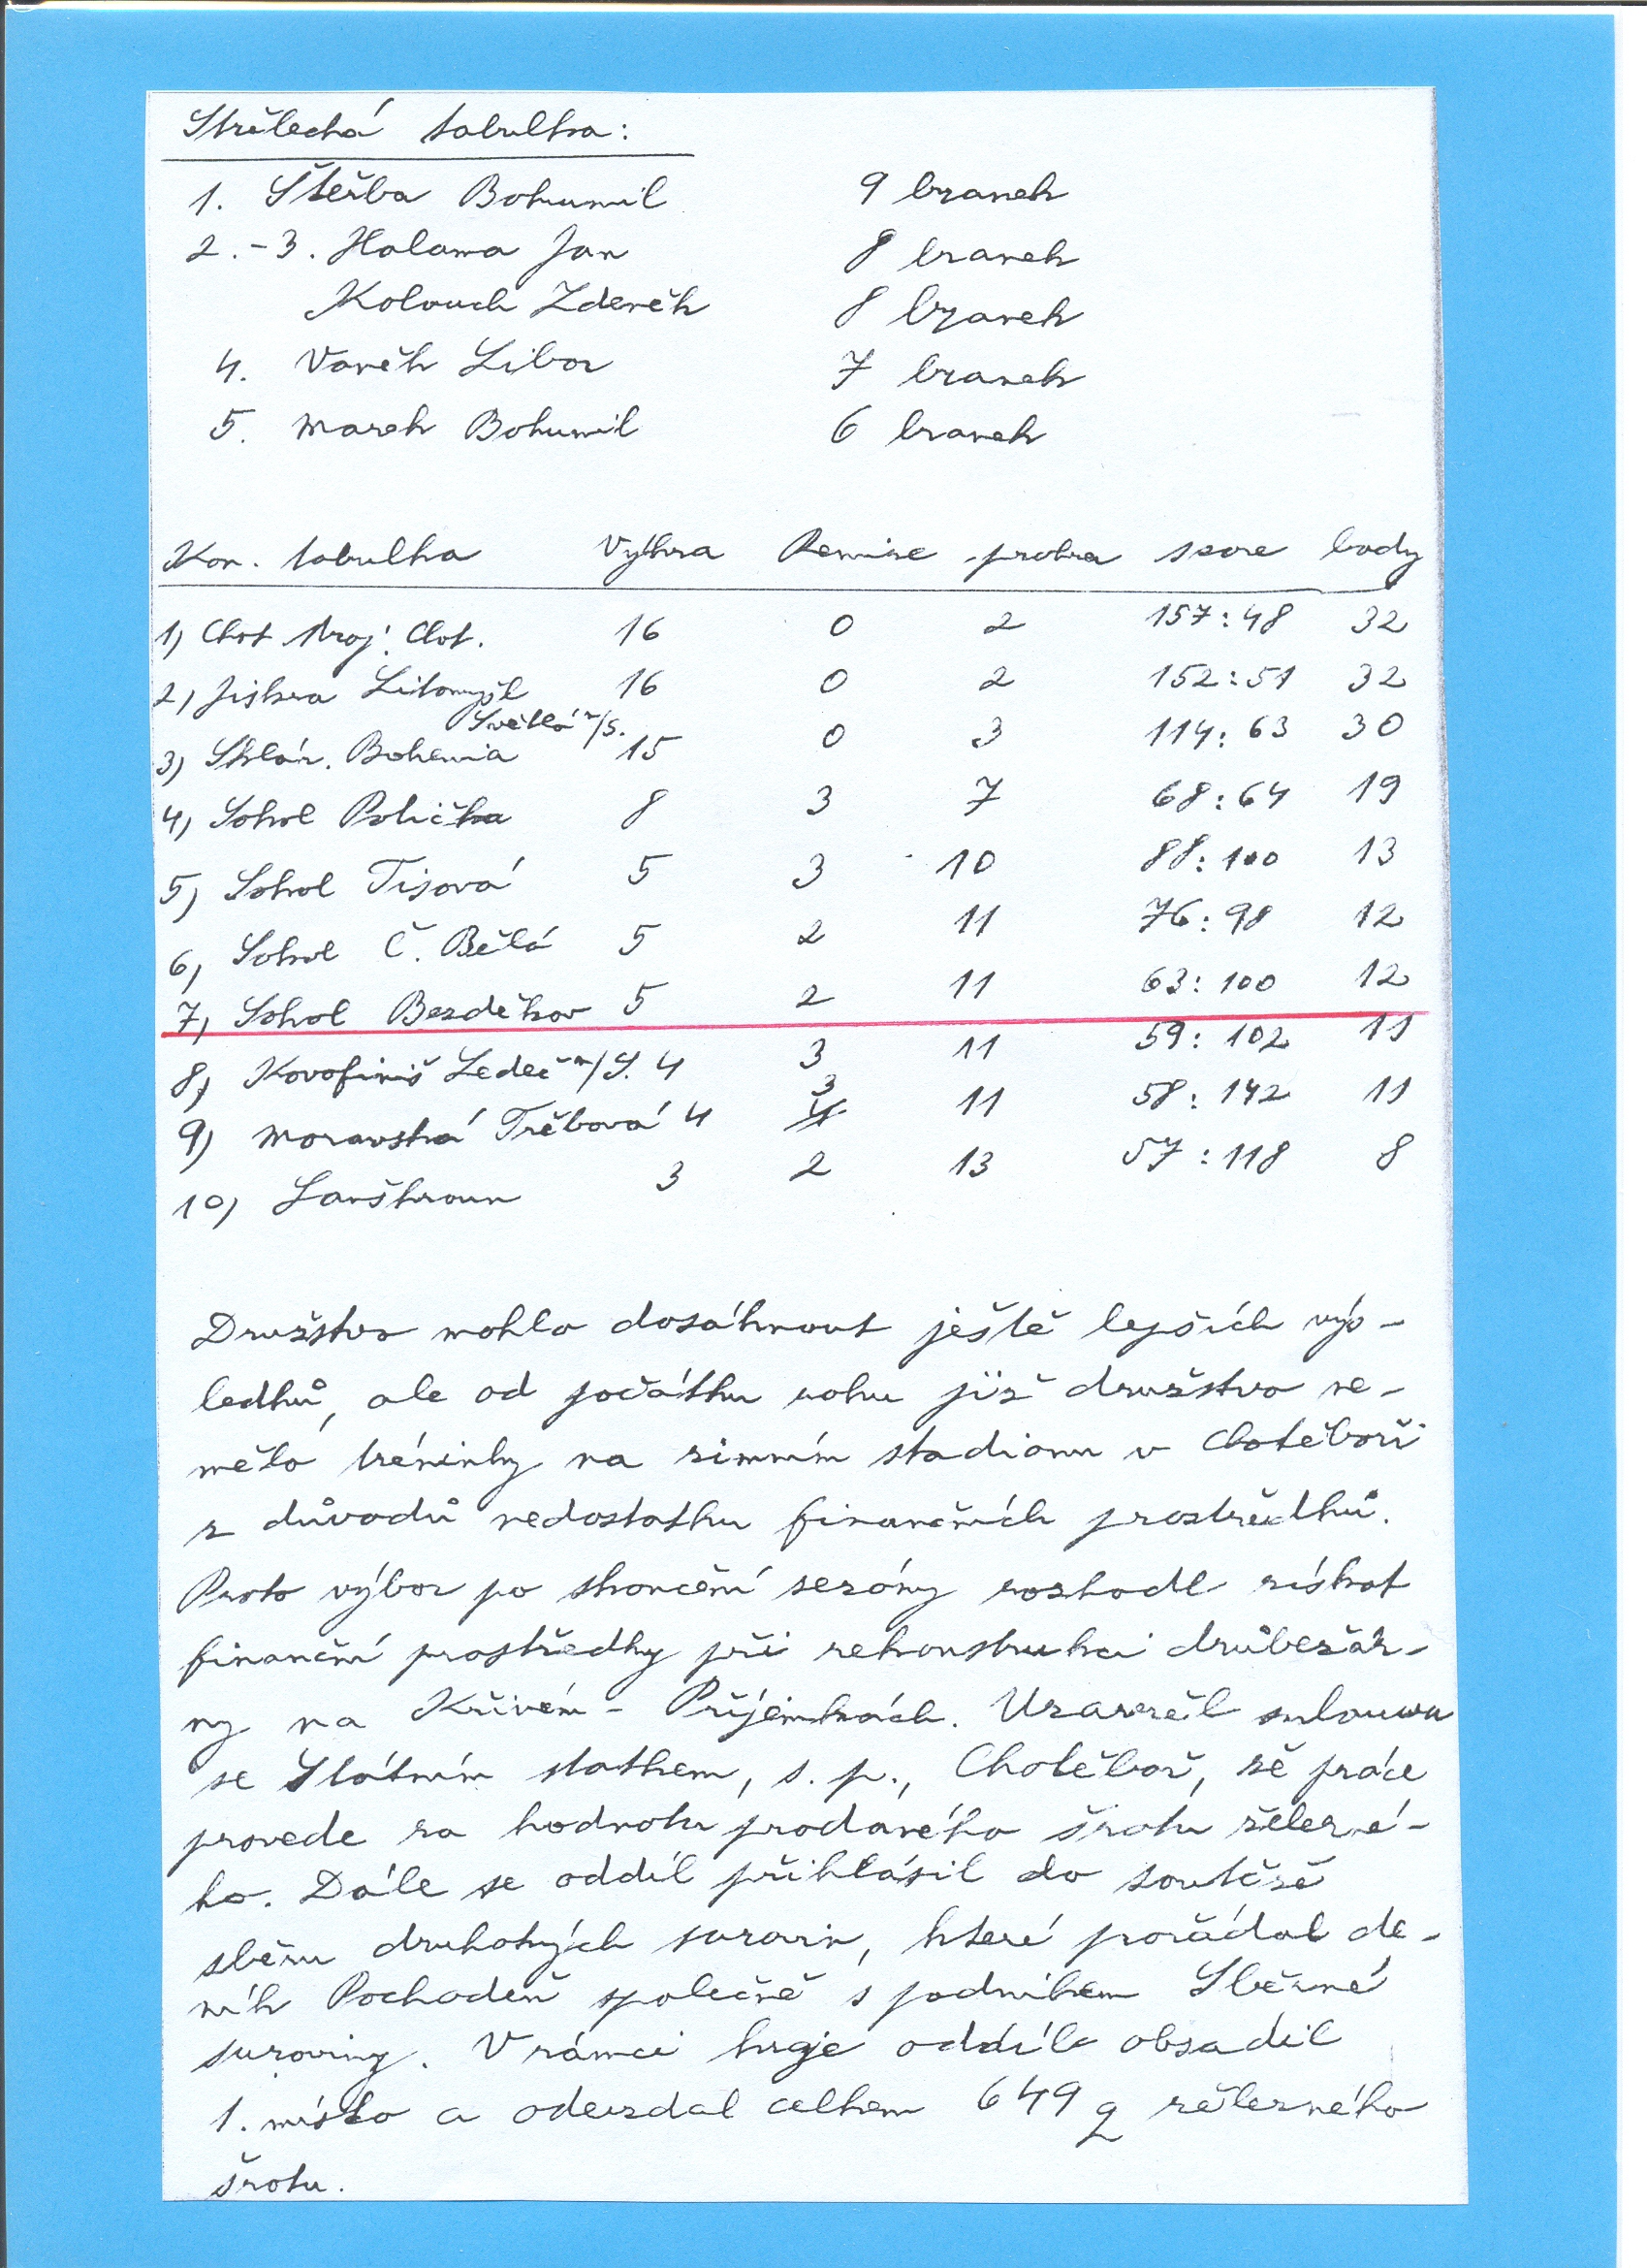 Střelecká tabulka:
1. Štěrba Bohumil 9 branek
2.-3. Halama Jan 8 branek
Kolouch Zdeněk 8 branek
4. Vaněk Libor 7 branek
5. Marek Bohumil 6 branek
Kon. tabulka Výhra Remise prohra skore body
1) Chot stroj. Chot. 16 0 2 157:48 32
2) Jiskra Litomyšl 16 0 2 152:51 32
Světlá n/S.
3) Sklár. Bohemia 15 0 3 114:63 30
4) Sokol Polička 8 3 7 68:64 19
5) Sokol Tisová 5 3 10 88:100 13
6) Sokol Č. Bělá 5 2 11 76:98 12
7) Sokol Bezděkov 5 2 11 63:100 12
8) Kovofiniš Ledeč n/S. 4 3 11 59:102 11
9) Moravská Třebová 4 3 11 58:142 11
10) Lanškroun 3 2 13 57:118 8
Družstvo mohlo dosáhnout ještě lepších vý-
ledků, ale od počátku roku již družstvo ne-
mělo tréninky na zimním stadionu v Chotěboři
z důvodů nedostatku finančních prostředků.
Proto výbor po skončení sezóny rozhodl získat
finanční prostředky při rekonstrukci drůbežár-
ny na Křivém - Příjemkách. Uzavřel smlouvu
se Státním statkem, s.p., Chotěboř, že práce
provede za hodnotu prodaného šrotu železné-
ho. Dále se oddíl přihlásil do soutěže
sběru druhotných surovin, které pořádal de-
ník Pochodeň společně s podnikem Sběrné
suroviny. V rámci kraje oddíl obsadil
1. místo a odevzdal celkem 649 q železného
šrotu.